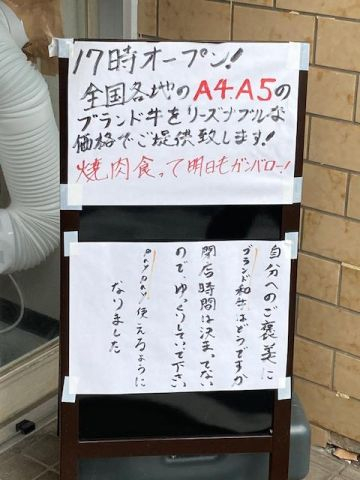 17時オープン!
全国各地のA4.A5の
ブランド牛をリーズナブルな
価格でご提供致します!
焼肉食って明日もガンバロー!
自分へのご褒美に
ブランド和牛はどうですか
閉店時間は決まってない
ので、ゆっくりしていて下さい
PayPay使えるように
なりました